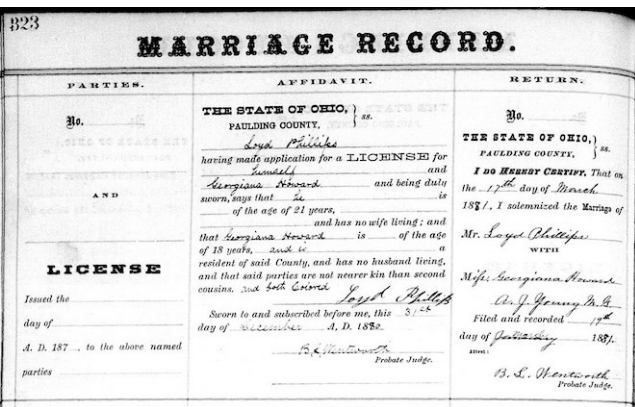 323
MARRIAGE RECORD.
PARTIES.
No.
AND
LICENSE
Issued the
day of
A. D. 187 , to the above named
parties
AFFIDAVIT.
THE STATE OF OHIO,
PAULDING COUNTY, } ss.
Loyd Phillips
having made application for a LICENSE for
himself and
Georgiana Howard and being duty
sworn, says that he is
of the age of 21 years,
and has no wife living; and
that Georgiana Howard is of the age
of 18 years, and is a
resident of said County, and has no husband living,
and that said parties are not nearer kin than second
cousins. and both Colored
Loyd Phillips
Sworn to and subscribed before me, this 31st
day of December A. D. 1880
B. L. Wentworth
Probate Judge.
RETURN.
No.
THE STATE OF OHIO,
PAULDING COUNTY, } ss.
I DO HEREBY CERTIFY, That on
the 17th day of March
1881, I solemnized the Marriage of
Mr. Loyd Phillips
WITH
Miss Georgiana Howard
A. J. Young M. G
Filed and recorded 19th
day of 1881.
Attest:
B. L. Wentworth
Probate Judge.